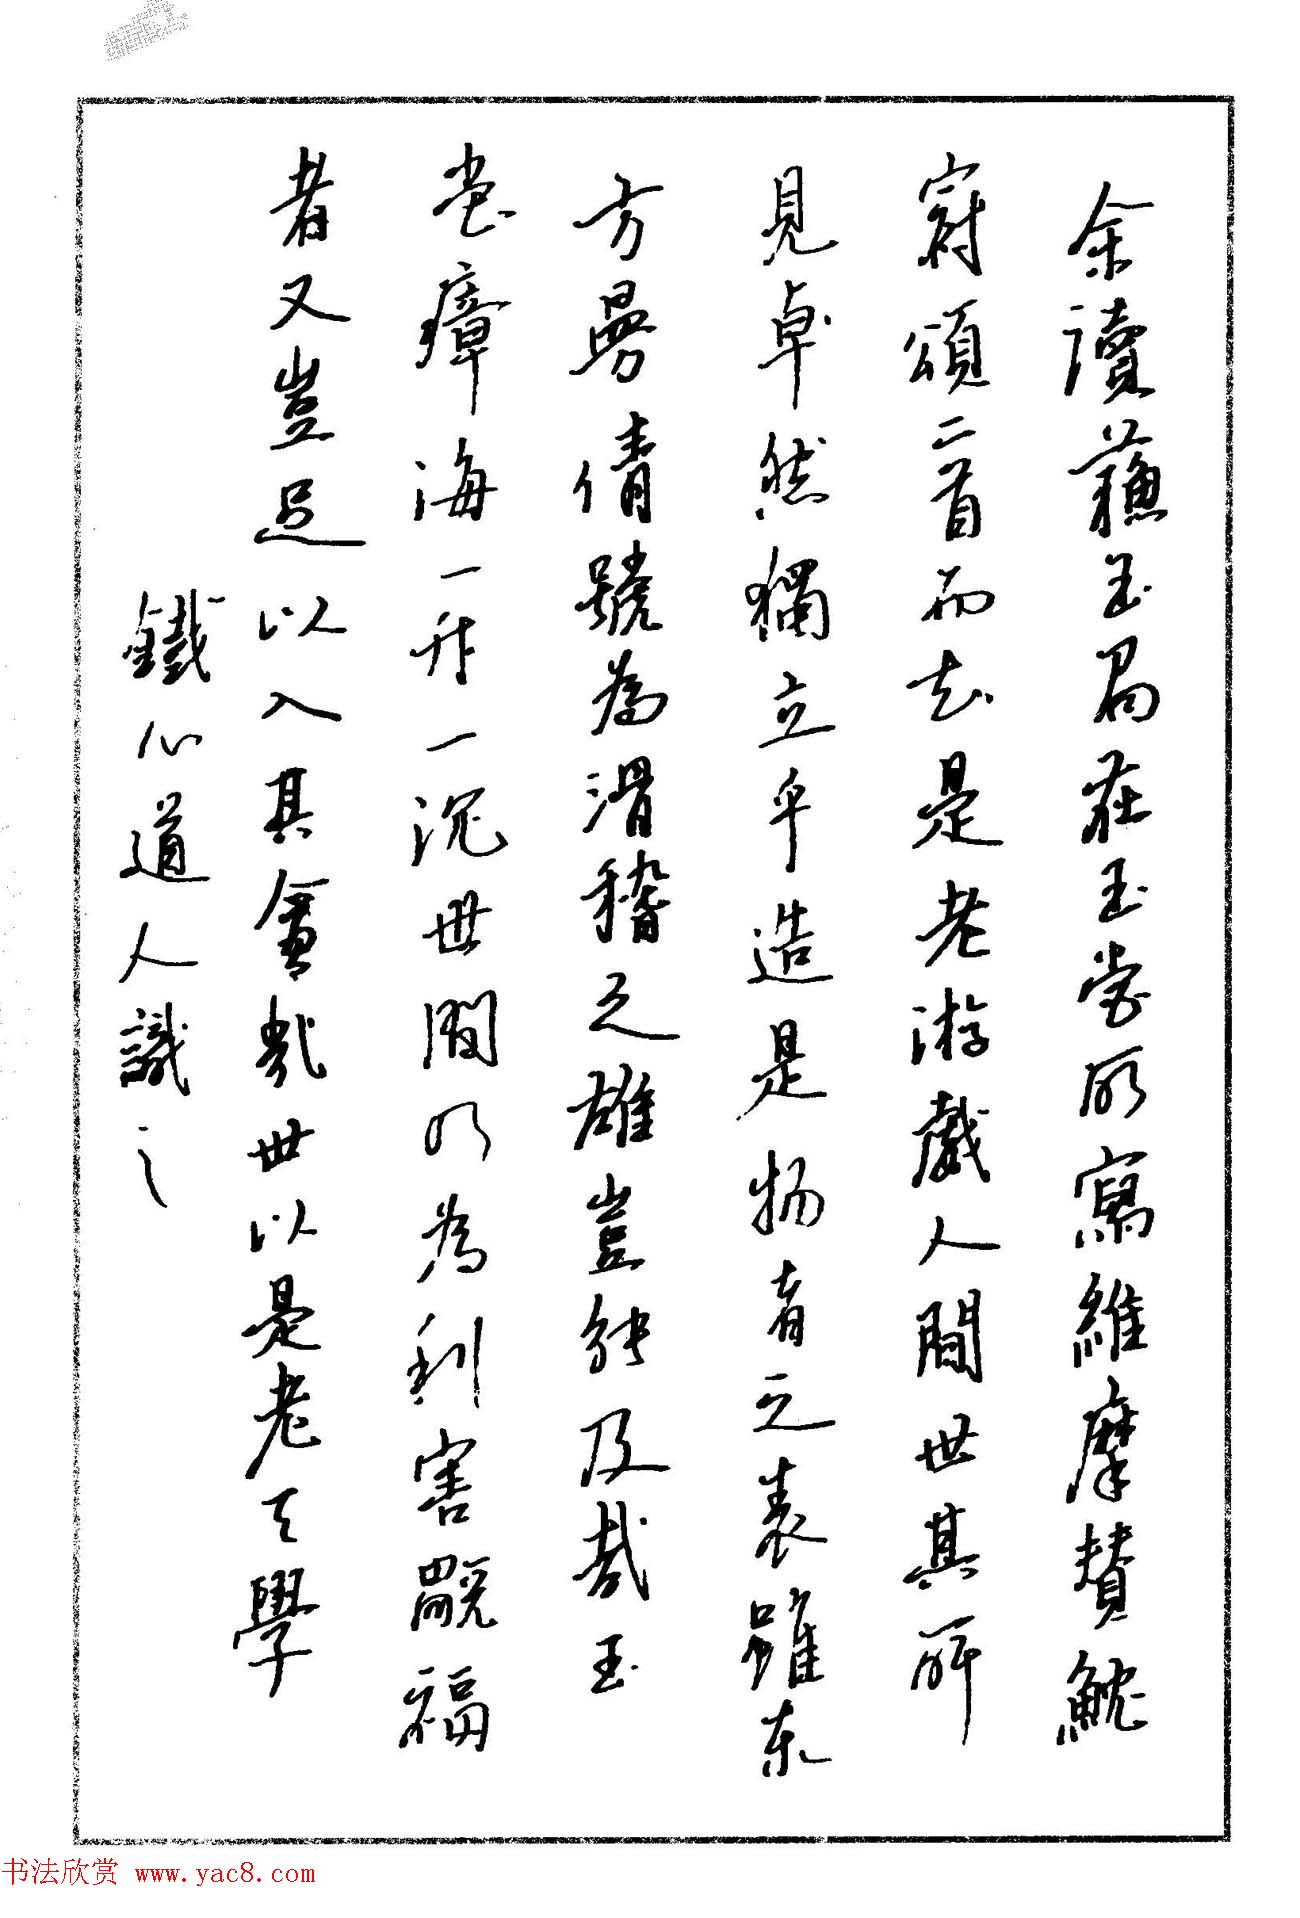 余讀蘓玉局在玉堂所寫維摩贊魫
冠頌二首而知是老游戲人間世其所
見卓然獨立乎造是物者之表雖東
方曼倩號為滑稽之雄豈能及哉玉
堂瘴海一升一沉世間以為利害旤福
者又豈足以入其哉世以是老學
鐵心道人識之
书法欣赏 www.yac8.com